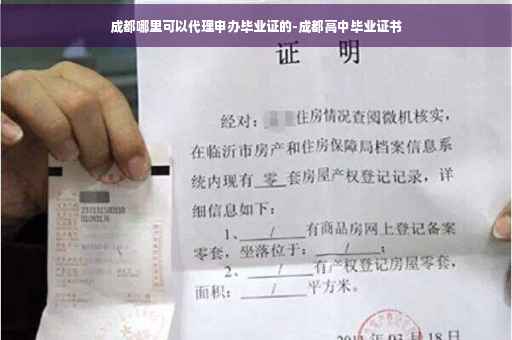 成都哪里可以代理申办毕业证的-成都高中毕业证书
证 明
经对: 住房情况查阅微机核实,
在临沂市房产和住房保障局档案信息系
统内现有 零 套房屋产权登记记录,详
细信息如下:
1、 / 有商品房网上登记备案
零套,坐落位于: / ;
2、 / 有产权登记房屋零套,
面积: / 平方米。
03月18日